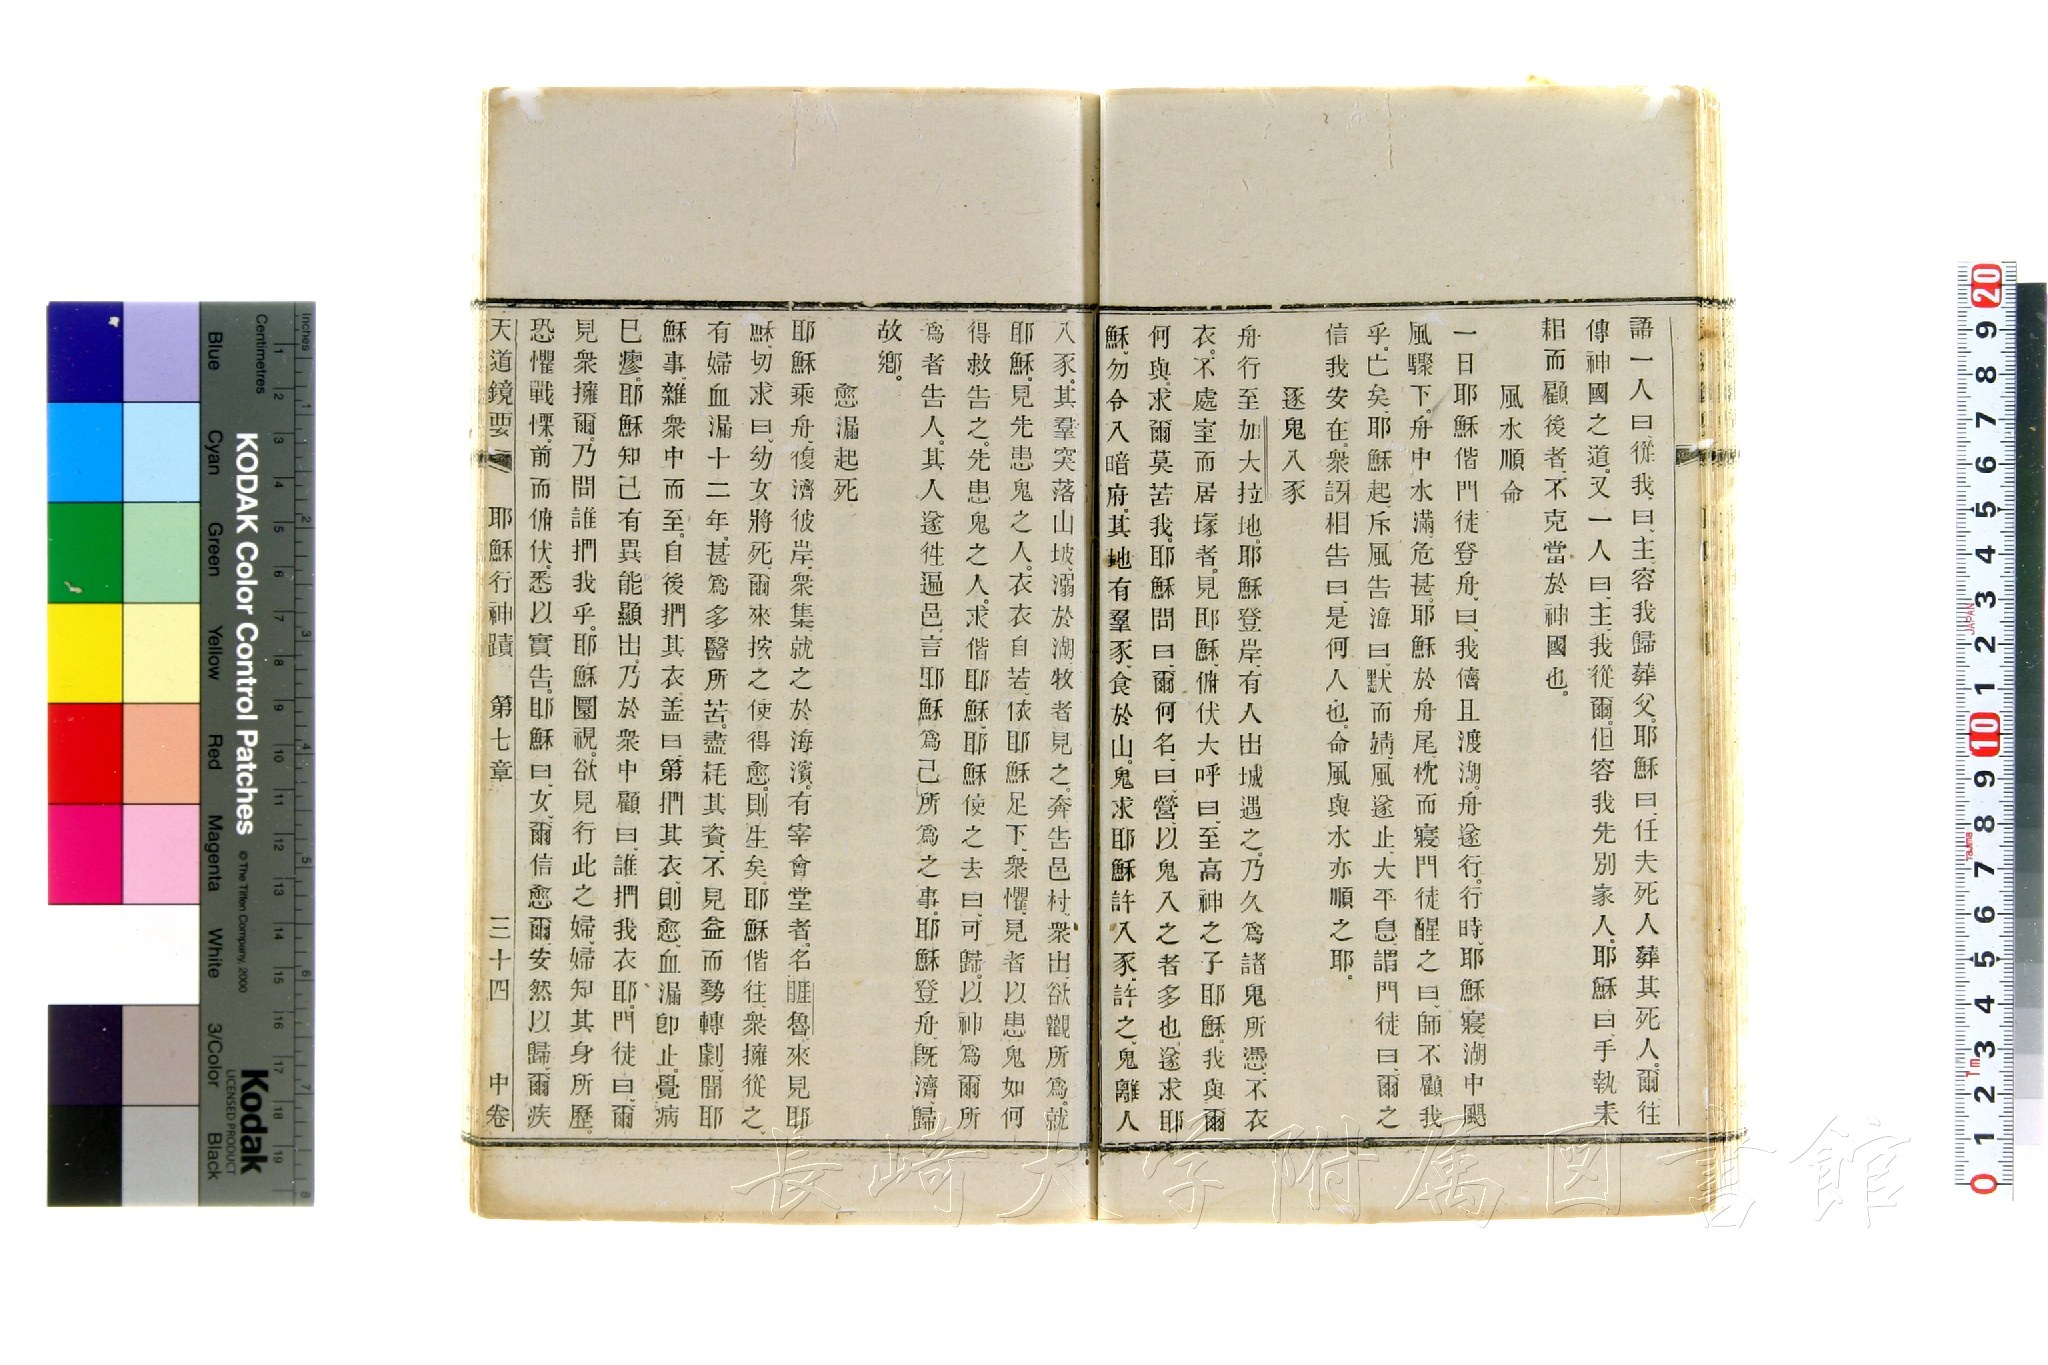 語一人曰、從我、曰、主、容我歸葬父。耶穌曰、任夫死人葬其死人。爾往
傳神國之道。又一人曰、主、我從爾。但容我先別家人。耶穌曰、手執耒
耜而顧後者、不克當於神國也。
風水順命
一日耶穌偕門徒登舟、曰、我儕且渡湖。舟遂行。行時、耶穌寢、湖中颶
風驟下、舟中水滿、危甚。耶穌於舟尾、枕而寢、門徒醒之曰、師不顧我
乎。亡矣、耶穌起、斥風告海曰、默而靖、風遂止、大平息、謂門徒曰、爾之
信我安在、衆訝相告曰、是何人也。命風與水亦順之耶。
逐鬼入豕
舟行至加大拉地。耶穌登岸、有人出城遇之。乃久為諸鬼所憑、不衣
衣。不處室而居塚者。見耶穌、俯伏大呼曰、至高神之子耶穌。我與爾
何與。求爾莫苦我。耶穌問曰、爾何名、曰、營、以鬼入之者多也。遂求耶
穌、勿令入暗府。其地有羣豕、食於山。鬼求耶穌許入豕、許之、鬼離人
入豕。其羣突落山坡、溺於湖、牧者見之。奔告邑村、衆出、欲觀所為。就
耶穌。見先患鬼之人。衣衣自若、依耶穌足下、衆懼、見者以患鬼如何
得救告之。先患鬼之人。求偕耶穌、耶穌使之去曰、可歸。以神為爾所
為者告人。其人遂徃遍邑、言耶穌為己所為之事。耶穌登舟、既濟、歸
故鄉。
愈漏起死
耶穌乘舟、復濟彼岸、衆集就之於海濱。有宰會堂者。名睚魯、來見耶
穌、切求曰、幼女將死、爾來按之使得愈。則生矣。耶穌偕往、衆擁從之、
有婦血漏十二年。甚為多醫所苦。盡耗其資、不見益而勢轉劇、聞耶
穌事、雜衆中而至。自後捫其衣、盖曰、第捫其衣、則愈、血漏卽止。覺病
已瘳。耶穌知己有異能顯出、乃於衆中顧曰、誰捫我衣耶。門徒曰、爾
見衆擁爾。乃問誰捫我乎。耶穌圜視。欲見行此之婦、婦知其身所歷。
恐懼戰慄。前而俯伏。悉以實告。耶穌曰、女、爾信愈爾、安然以歸、爾疾
天道鏡要 耶穌行神蹟 第七章 三十四 中卷
KODAK Color Control Patches
© The Tiffen Company, 2000
Kodak
LICENSED PRODUCT
Inches
Centimetres
Blue Cyan Green Yellow Red Magenta White 3/Color Black
長崎大学附属図書館